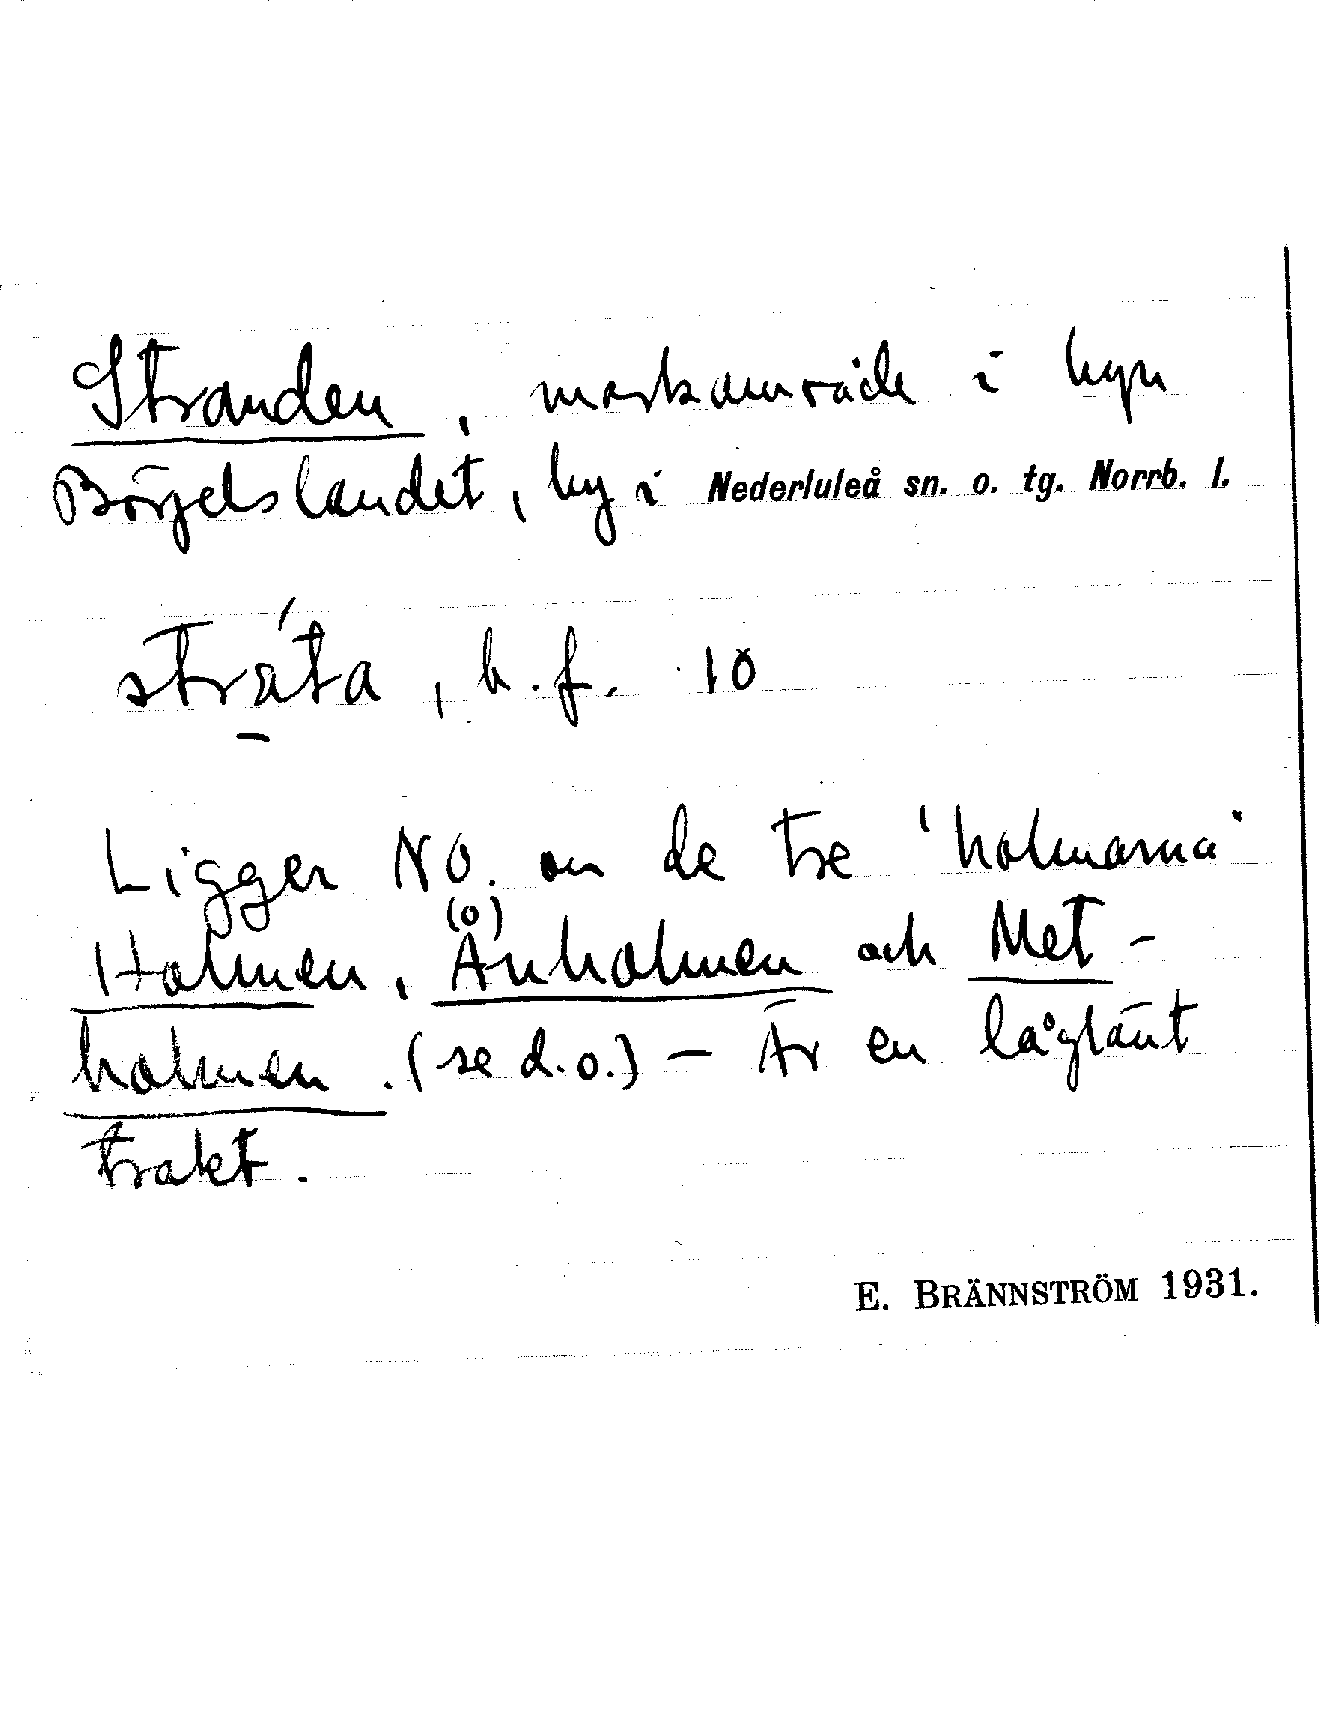 Stranden, markområde i byn
Börjelslandet, by i Nederluleå sn. o. tg. Norrb. l.
stráta, b.f. 10
Ligger NO. om de tre "holmarna"
(o)
Holmen, Ånholmen och Met-
holmen. (se d.o.) — Är en låglänt
trakt.
E. BRÄNNSTRÖM 1931.